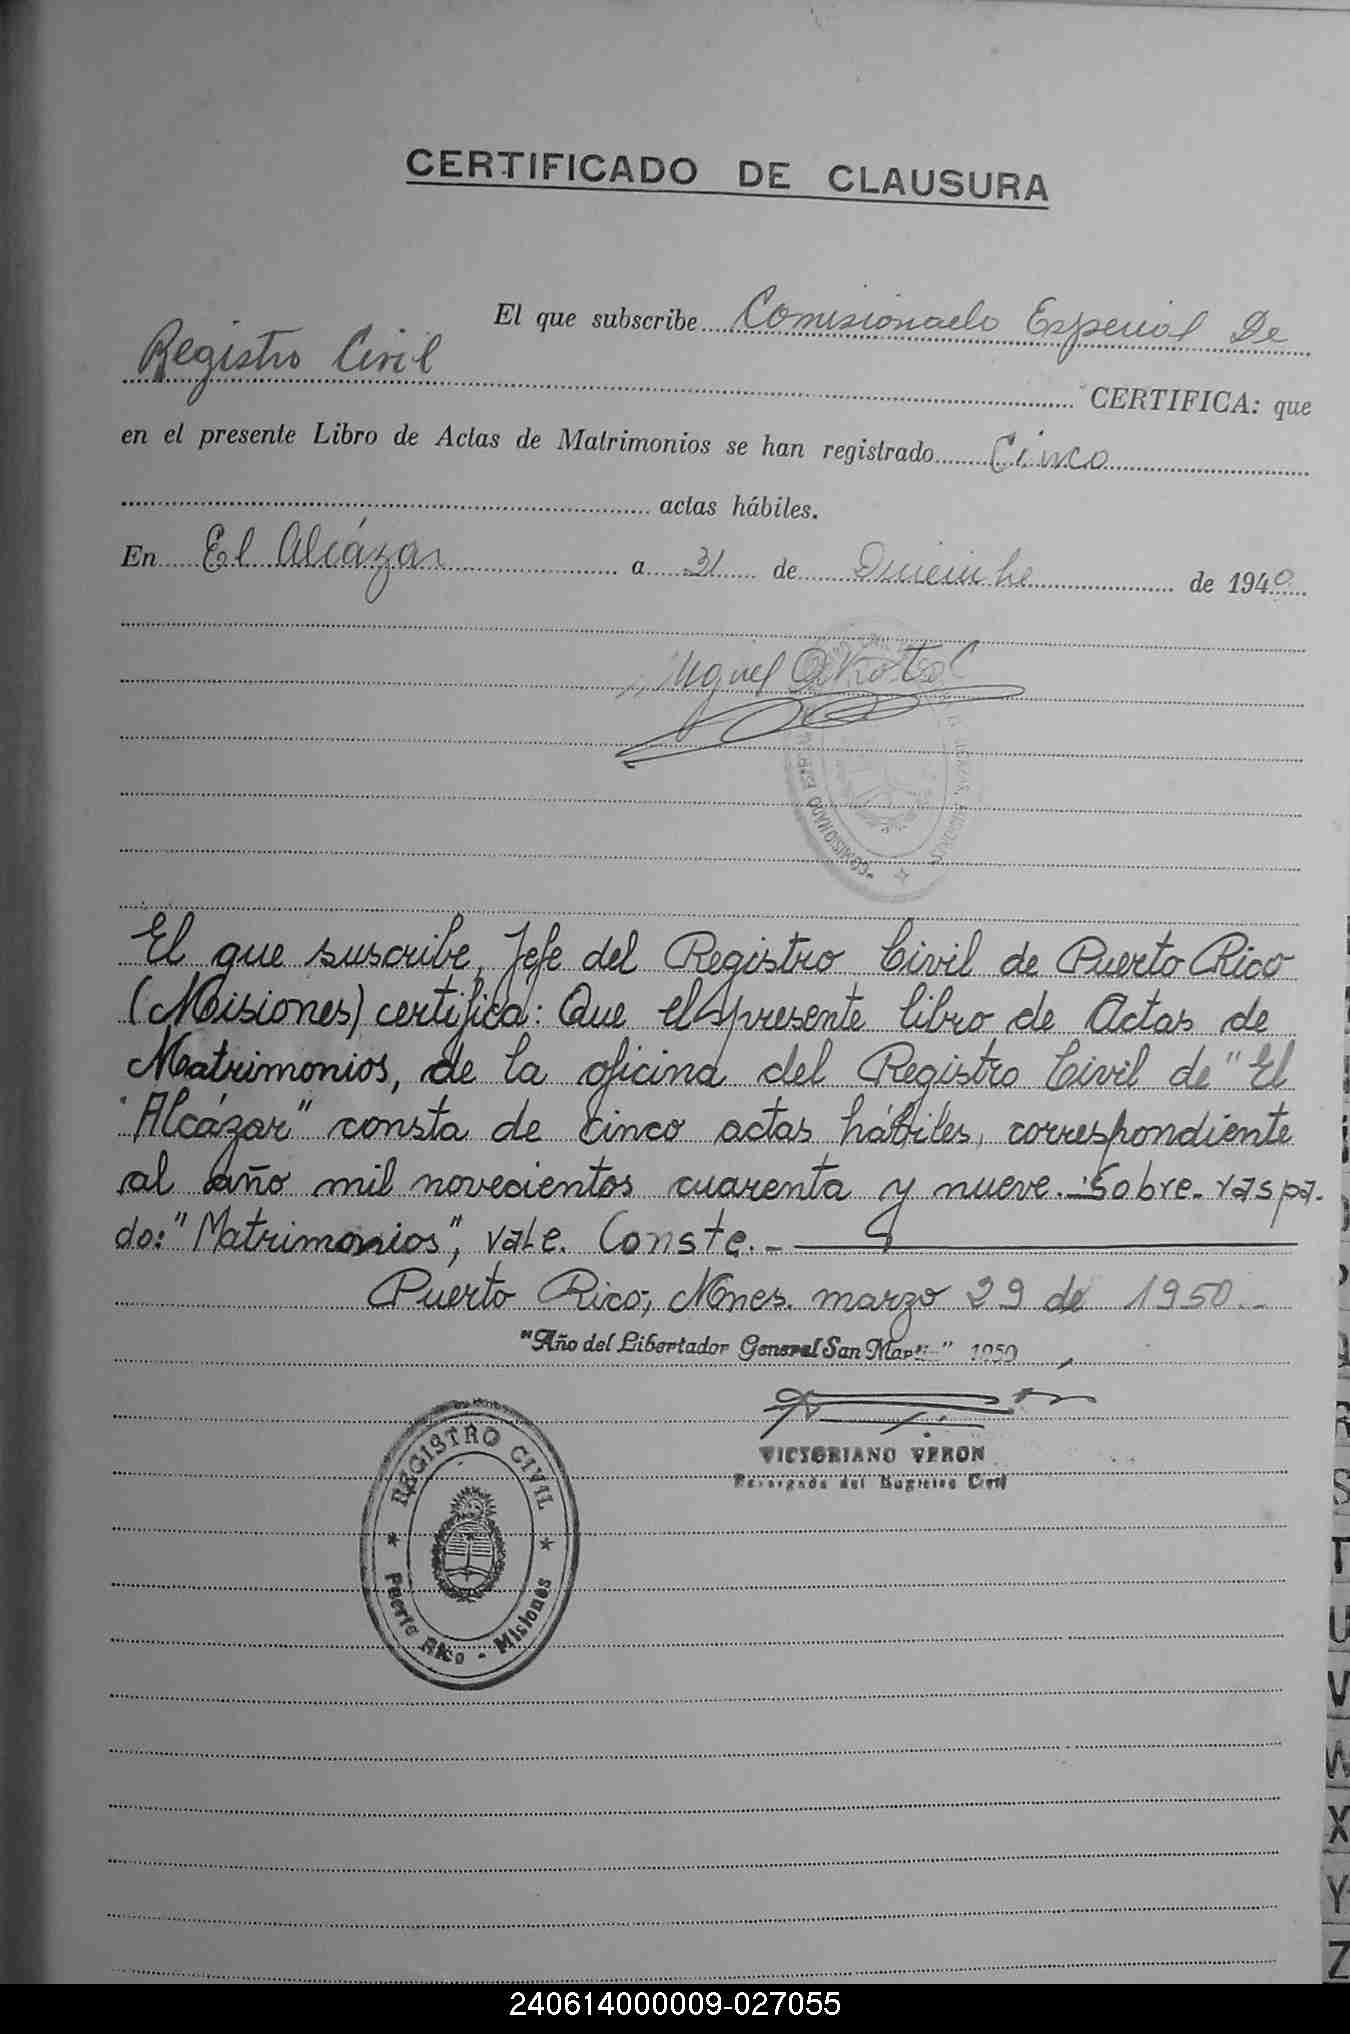 CERTIFICADO DE CLAUSURA
El que subscribe Comisionado Especial De
Registro Civil CERTIFICA: que
en el presente Libro de Actas de Matrimonios se han registrado Cinco
actas hábiles.
En El Alcázar a 31 de Diciembre de 1949
Miguel
El que suscribe, Jefe del Registro Civil de Puerto Rico
(Misiones) certifica: Que el presente libro de Actas de
Matrimonios, de la oficina del Registro Civil de "El
Alcázar" consta de cinco actas hábiles, correspondiente
al año mil novecientos cuarenta y nueve.- Sobre-raspa-
do: "Matrimonios", vale. Conste.-
Puerto Rico, Mnes. marzo 29 de 1950.-
"Año del Libertador General San Martín" 1950
VICTORIANO VERON
Encargado del Registro Civil
REGISTRO CIVIL
Puerto Rico - Misiones
R
S
T
U
V
W
X
Y
Z
240614000009-027055